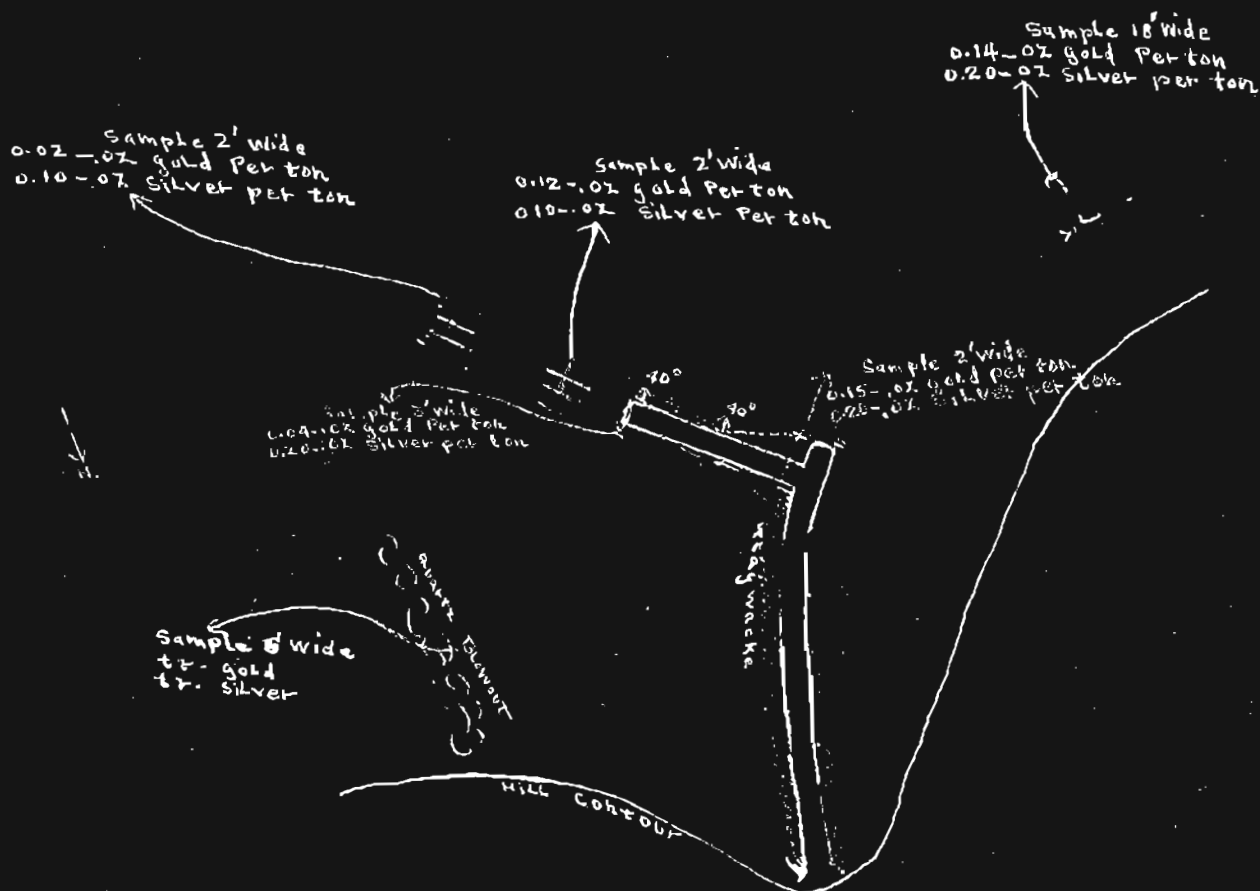 Sample 18' Wide
0.14-oz gold Per ton
0.20-oz Silver per ton
Sample 2' Wide
0.02-.oz gold Per ton
0.10-.oz Silver per ton
Sample 2' Wide
0.12-.oz gold Per ton
0.10-.oz Silver Per ton
Sample 2' Wide
0.15-.oz gold per ton
.oz Silver per ton
70°
70°
Sample Wide
0.04-.oz gold Per ton
0.20-.oz Silver per ton
N.
wacke
Quartz Blowout
Sample Wide
tr. gold
tr. Silver
Hill Contour